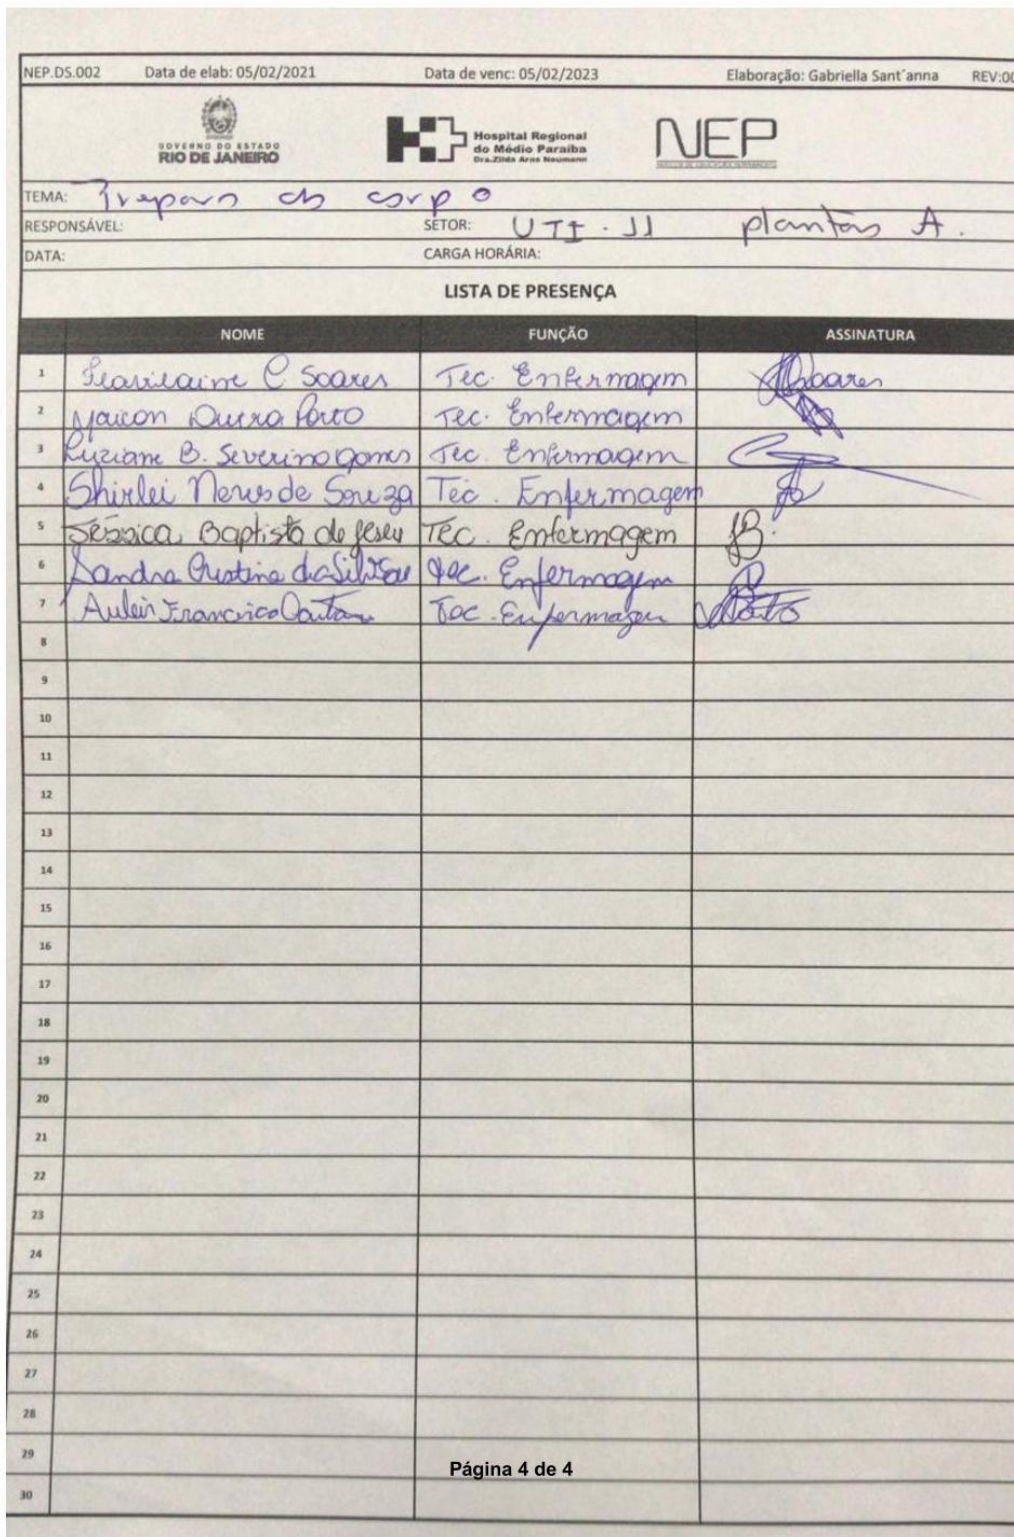 NEP.DS.002 Data de elab: 05/02/2021 Data de venc: 05/02/2023 Elaboração: Gabriella Sant´anna REV:00
GOVERNO DO ESTADO
RIO DE JANEIRO
Hospital Regional
do Médio Paraíba
Dra.Zilda Arns Neumann
NEP
TEMA: Preparo do corpo
RESPONSÁVEL: SETOR: UTI - II plantão A.
DATA: CARGA HORÁRIA:
LISTA DE PRESENÇA
NOME FUNÇÃO ASSINATURA
1 C Soares Tec. Enfermagem
2 Maicon Dutra Porto Tec. Enfermagem
3 Luziane B. Severino Gomes Tec. Enfermagem
4 Shirlei Neves de Souza Tec. Enfermagem
5 Jéssica Baptista de Jesus Tec. Enfermagem JB.
6 Sandra Cristina da Silva Tec. Enfermagem
7 Francisco Tec. Enfermagem
8
9
10
11
12
13
14
15
16
17
18
19
20
21
22
23
24
25
26
27
28
29
Página 4 de 4
30